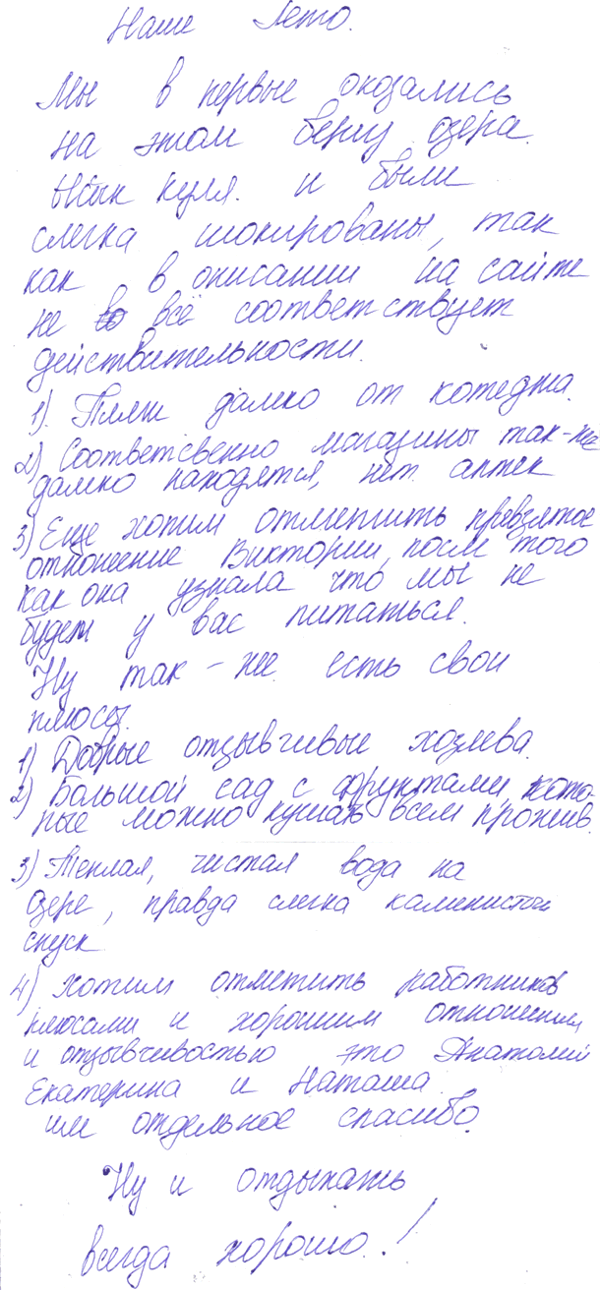 Наше Лето.
Мы в первые оказались
на этом берегу озера.
Ысык куля. и были
слегка шокированы, так
как в описании на сайте
не всё соответствует
действительности.
1). Пляж далеко от котеджа.
2) Соответсвенно магазины так-же
далеко находятся, нет аптек
3) Еще хотим отметить превзятое
отношение Виктории, после того
как она узнала что мы не
будем у вас питаться.
Ну так-же есть свои
плюсы.
1) Добрые отзывчивые хозяева.
2) Большой сад с фруктами, кото-
рые можно кушать всем прожив.
3) Теплая, чистая вода на
Озере, правда слегка каменистый
спуск
4) Хотим отметить работников
плюсами и хорошим отношением
и отзывчивостью это Анатолий
Екатерина и Наташа
им отдельное спасибо.
Ну и отдыхать
всегда хорошо.!